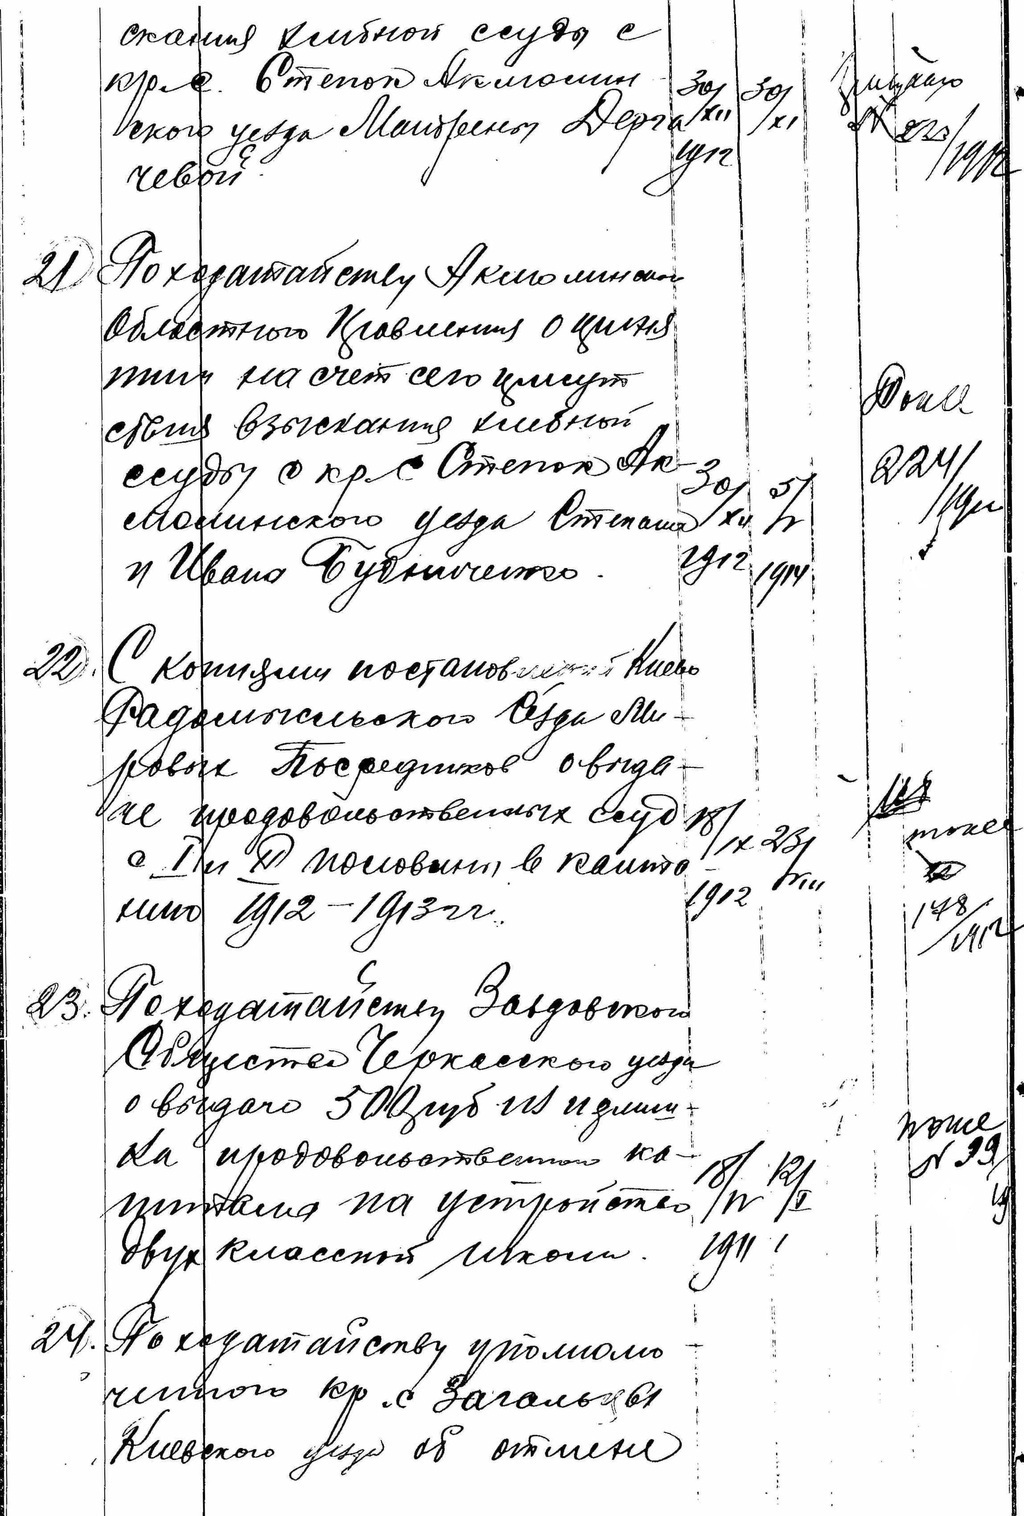 скания хлебной ссуды с
кр. с. Степок Акмолин
ского уезда Матрены Дерга
чевой
30/XII 1912
30/XI
1912
21) По ходатайству Акмолинского
Областного Правления о приня
тии на счет сего присут
ствия взыскания хлебной
ссуды с кр. с Степок Ак-
молинского уезда Степана
и Ивана
30/XII 1912
5/IV 1914
224/1912
22. С копиями постановлений Киево
Радомысльского Съезда Ми-
ровых Посредников о выда-
че продовольственных ссуд
с I и II половины в кампа-
нию 1912-1913 гг.
18/IX 1912
23/VIII
тоже
178/1912
23. По ходатайству
Общества Черкасского уезда
о выдаче 500 руб из излиш-
ка продовольственного ка-
питала на устройство
двух классной школы.
18/IV 1911
12/I
тоже
№ 99
24. По ходатайству уполномо-
ченного кр. с Загальцы
Киевского уезда об отмене